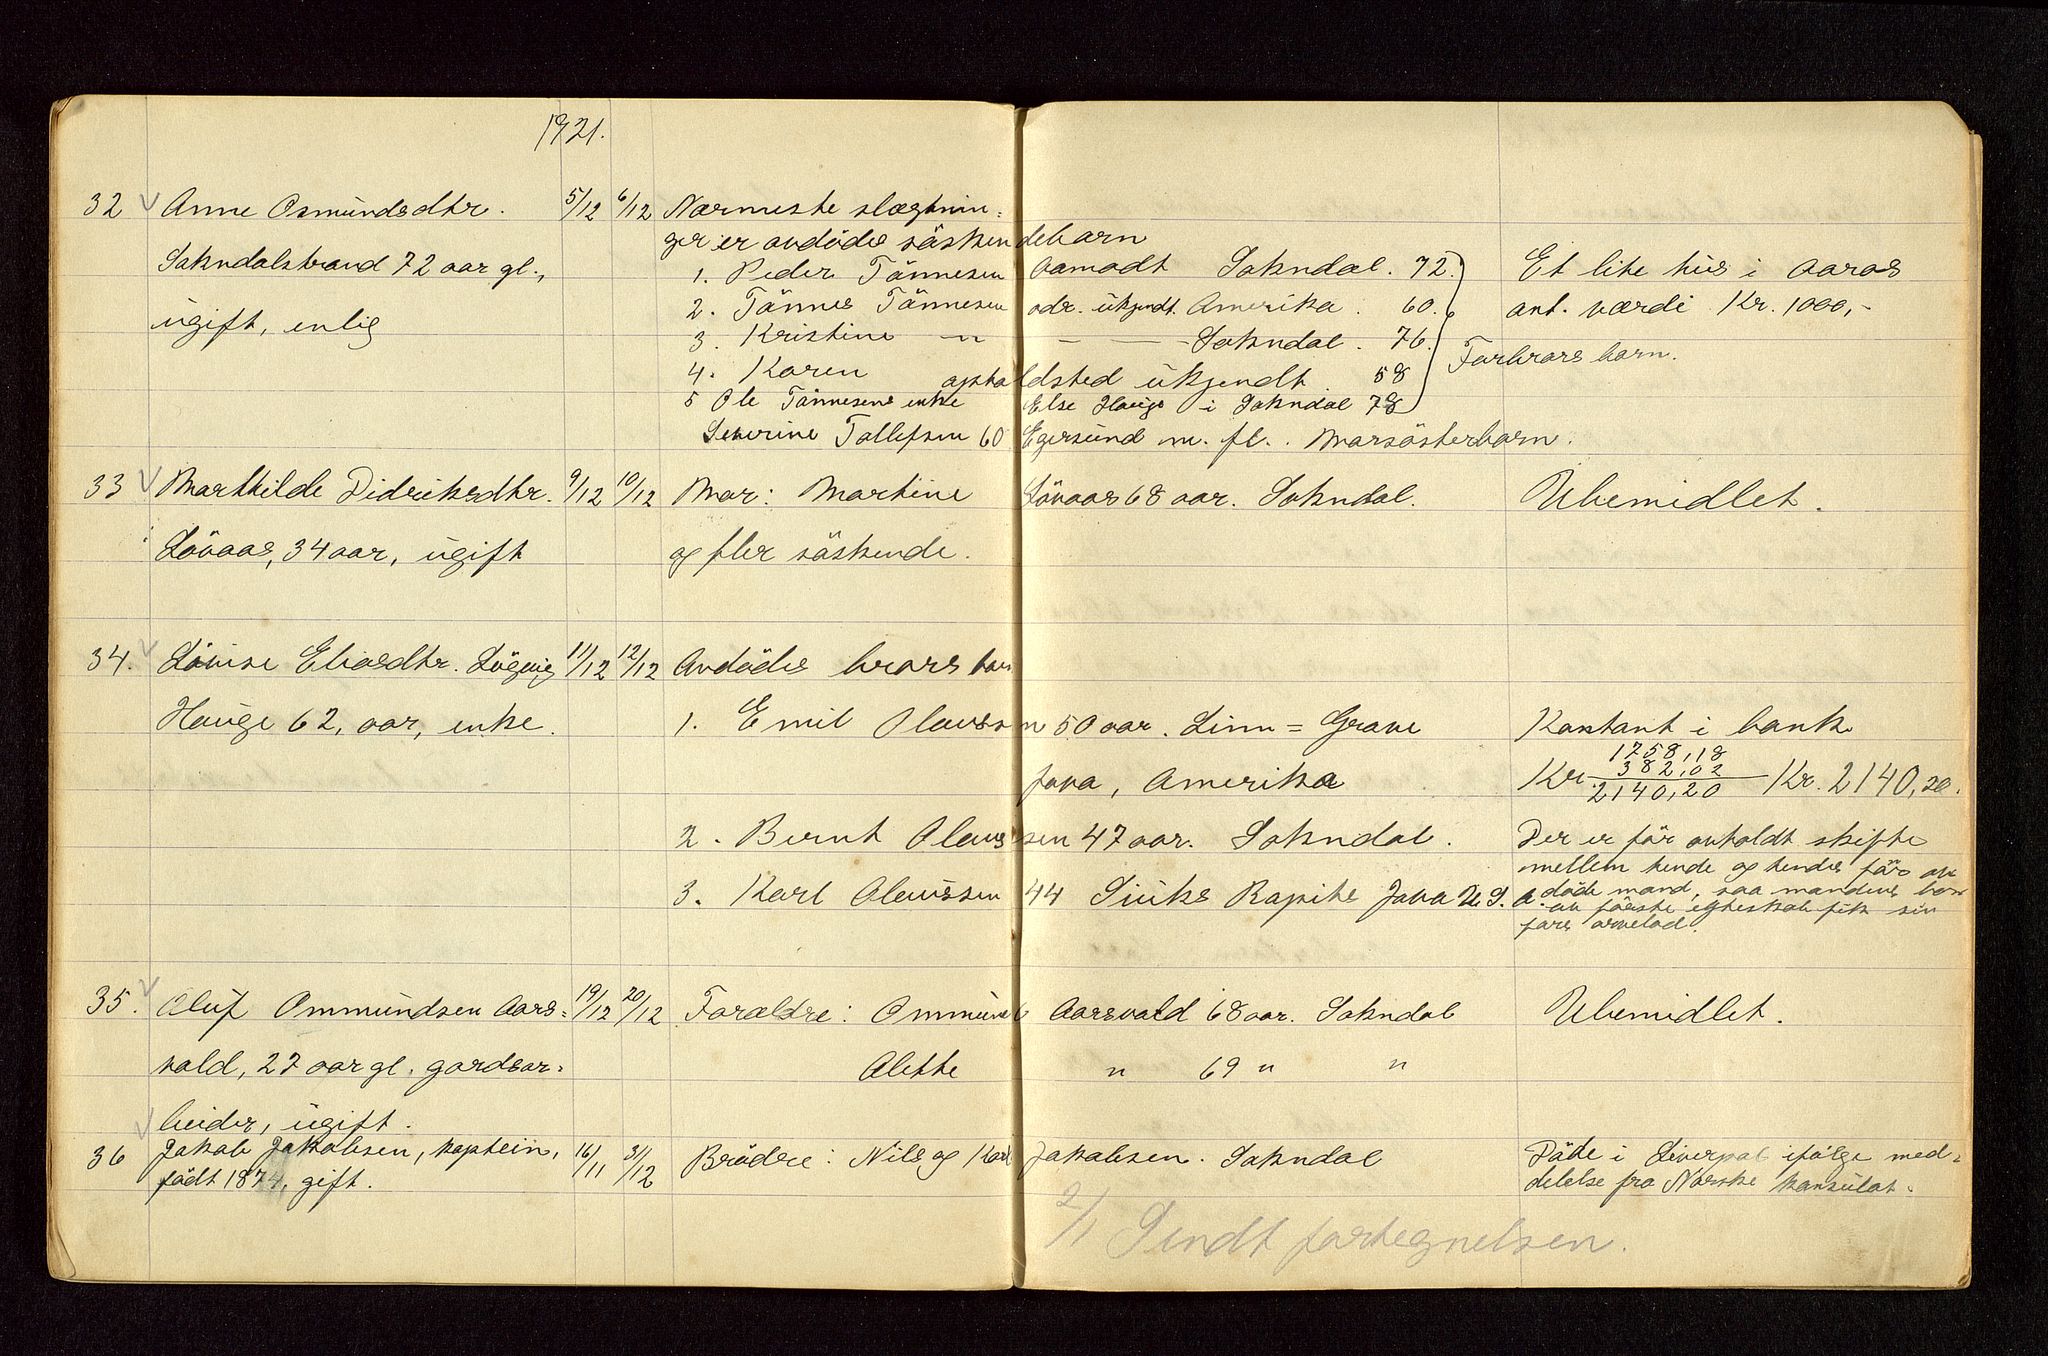 1921.
32 Anne Osmundsdtr. 5/12 6/12 Nærmeste slægtnin=
ger er avdødes søskendebarn
Sokndalstrand 72 aar gl., 1. Peder Tønnesen Aamodt Sokndal. 72. Et lite hus i Aaros
2. Tønnes Tønnesen adr. ukjendt. Amerika. 60. ant. værdi Kr. 1000,-
ugift, enlig 3. Kristine — " — — — Sokndal. 76. Farbrors barn.
4. Karen opholdsted ukjendt. 58
5 Ole Tønnesens enke Else Hauge i Sokndal 78
Severine Tollefsen 60 Egersund m. fl. Morsøsterbarn.
33 Marthilde Didriksdtr. 9/12 10/12 Mor: Martine Løvaas 68 aar. Sokndal. Ubemidlet.
Løvaas, 34 aar, ugift og fler søskende.
34. Lovise Eliasdtr. Løgevig 11/12 12/12 Avdødes brors barn
Hauge 62, aar, enke. 1. Emil Olaussen 50 aar. Linn = Grove Kontant i bank
1758,18
Jova, Amerika Kr 382,02 Kr. 2140,20.
2140,20
2. Bernt Olaussen 47 aar. Sokndal. Der er før avholdt skifte
mellem hende og hendes før av
3. Karl Olaussen 44 Siuks Rapits Jova U. S. A. døde mand, saa mandens barn
av første egteskab fik sin
fars arvelod.
35. Oluf Ommundsen Aars= 19/12 20/12 Forældre: Ommund Aarsvold 68 aar. Sokndal Ubemidlet.
vold, 27 aar gl. gardsar= Alette " 69 " "
beider, ugift.
36 Jakob Jakobsen, kaptein, 16/11 31/12 Brødre: Nils og Karl Jakobsen. Sokndal Døde i Liverpol ifølge med=
født 1874, gift. delelse fra Norske konsulat.
2/1 Sendt fortegnelsen.